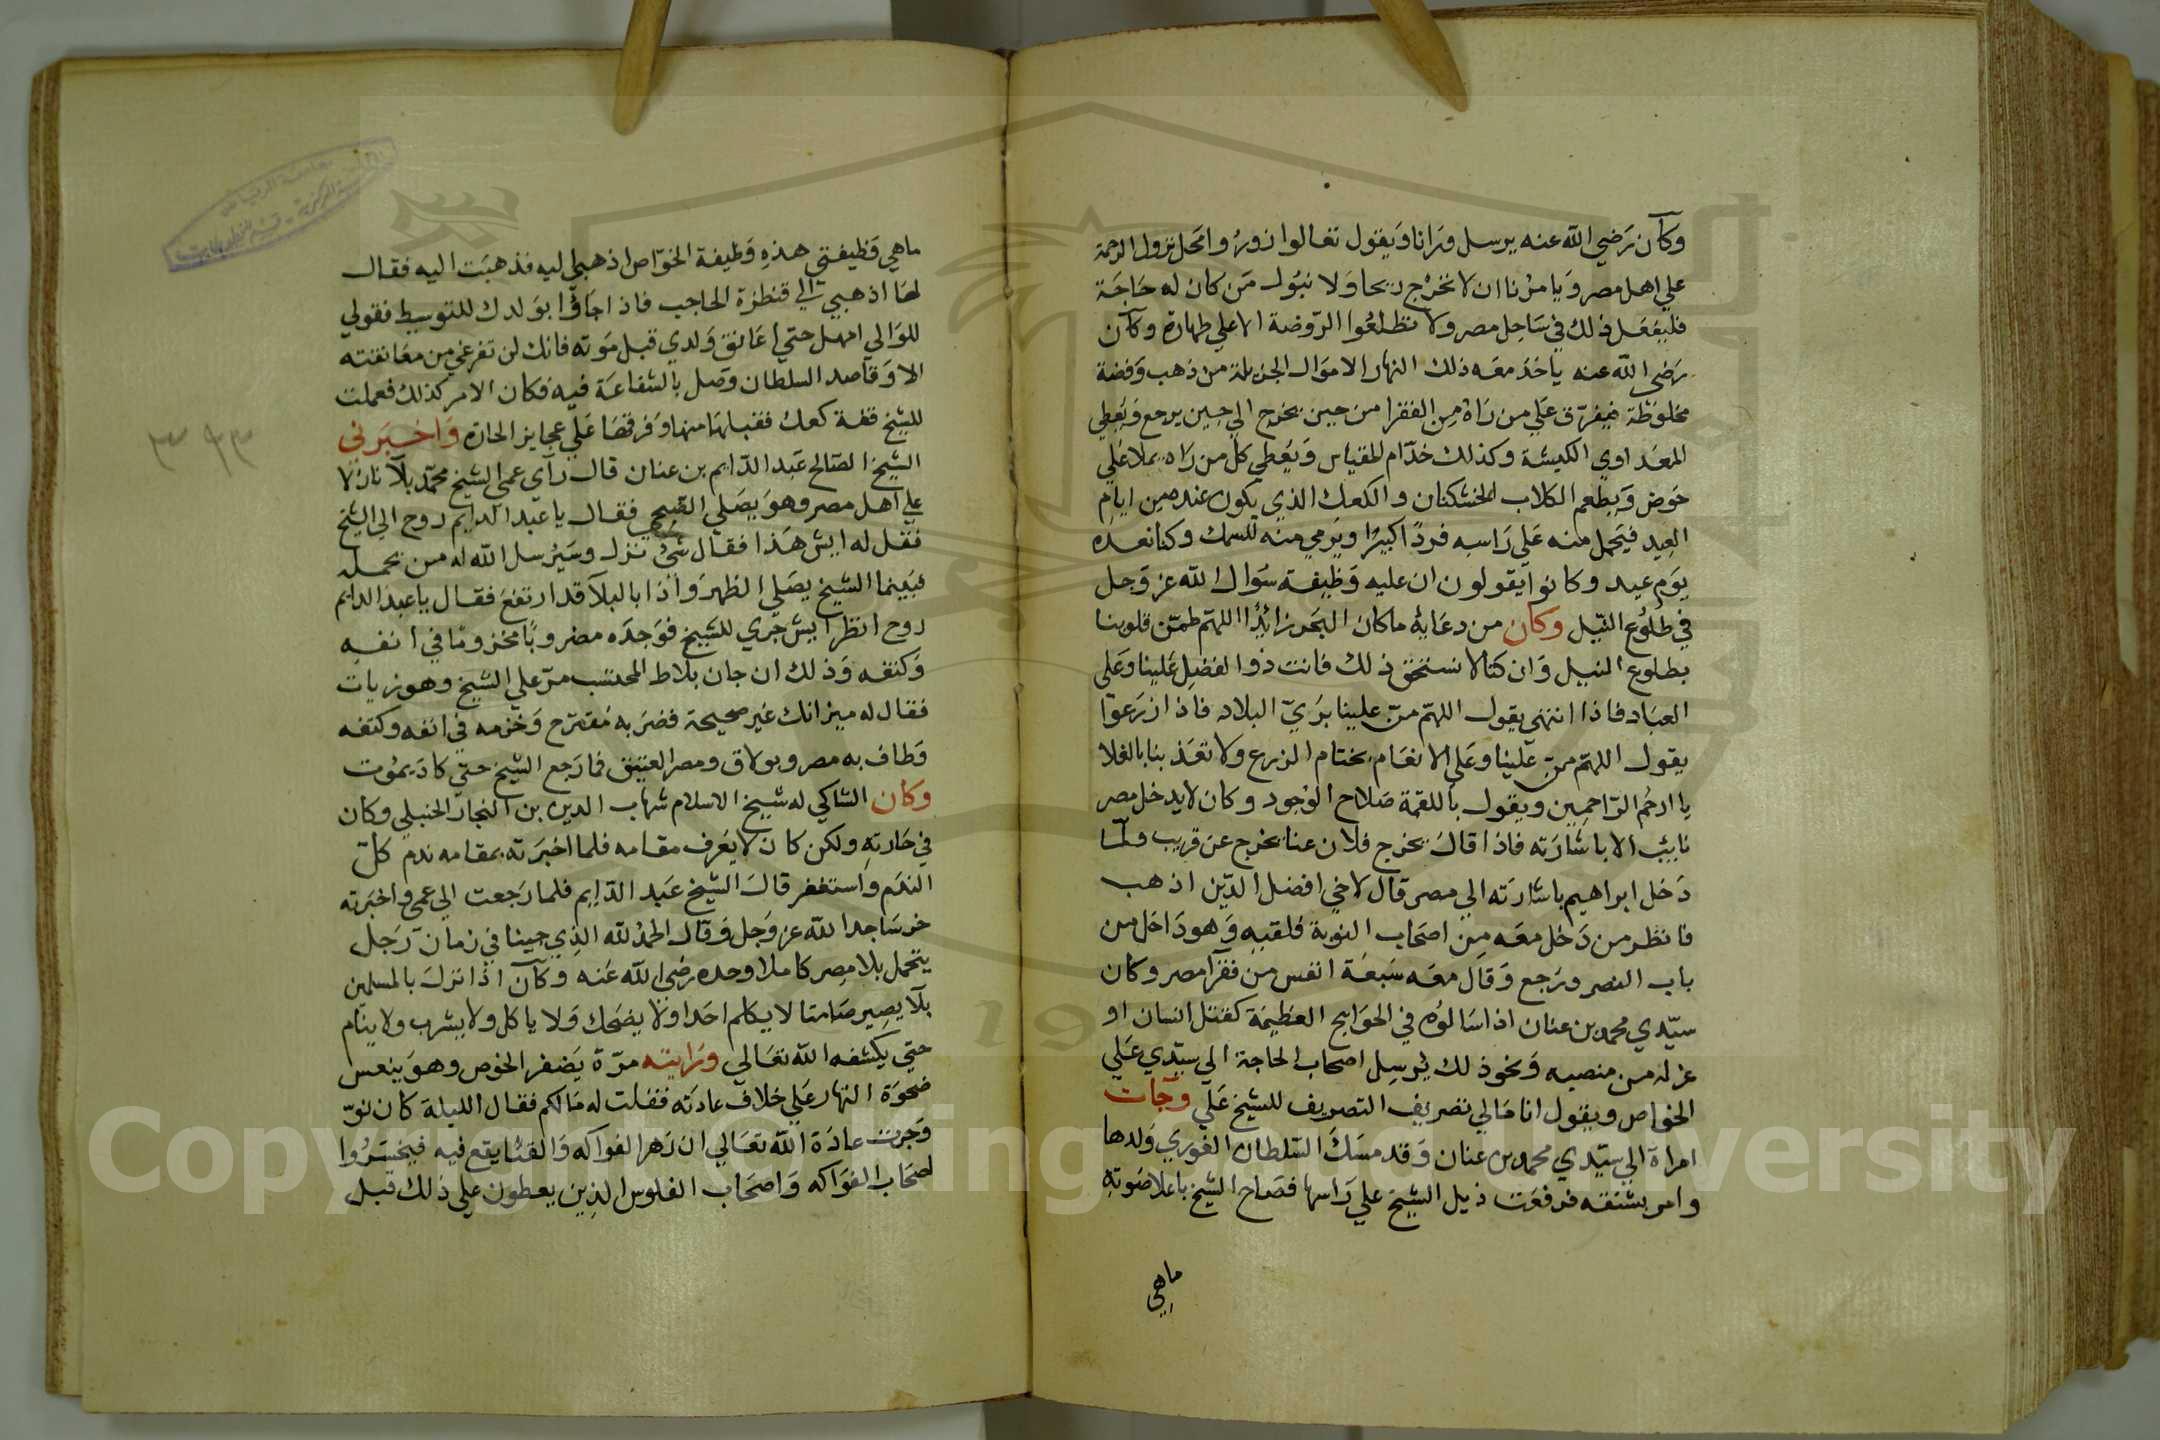 وكان رضي الله عنه يرسل ورانا ويقول تعالوا نزوروا محل نزول الرحمة
علي اهل مصر ويامرنا ان لا نخرج ريحا ولا نبول من كان له حاجة
فليفعل ذلك في ساحل مصر ولا تطلعوا الروضة الا علي طهارة وكان
رضي الله عنه ياخذ معه ذلك النهار الاموال الجزيلة من ذهب وفضة
مخلوطة فيفرق علي من راه من الفقرا من حين يخرج الي حين يرجع ويعطي
المعداوي الكبشة وكذلك خدام المقياس ويعطي كل من راه يملا علي
حوض ويطعم الكلاب الخشكنان والكعك الذي يكون عنده من ايام
العيد فيحمل منه علي راسه فردا كبيرا ويرمي منه للسمك وكنا نعده
يوم عيد وكانوا يقولون ان عليه وظيفة سوال الله عز وجل
في طلوع النيل وكان من دعايه ما كان البحر زائدا اللهم طمن قلوبنا
بطلوع النيل وان كنا لا نستحق ذلك فانت ذوا الفضل علينا وعلي
العباد فاذا انتهي يقول اللهم من علينا بري البلاد فاذا زرعوا
يقول اللهم من علينا وعلي الانعام بختام الزرع ولا تعذبنا بالغلا
يا ارحم الراحمين ويقول باللقمة صلاح الوجود وكان لا يدخل مصر
نايب الا باشارته فاذا قال يخرج فلان عنا يخرج عن قريب ولما
دخل ابراهيم باشارته الي مصر قال لاخي افضل الدين اذهب
فانظر من دخل معه من اصحاب النوبة فلقيه وهو داخل من
باب النصر ورجع وقال معه سبعة انفس من فقرا مصر وكان
سيدي محمد بن عنان اذا سالوه في الحوايج العظيمة كقتل انسان او
عزله من منصبه ونحو ذلك يرسل اصحاب الحاجة الي سيدي علي
الخواص ويقول انا مالي تصريف التصريف للشيخ علي وجات
امراة الي سيدي محمد بن عنان وقد مسك السلطان الغوري ولدها
وامر بشنقه فرفعت ذيل الشيخ علي راسها فصاح الشيخ باعلا صوته
ماهي
ماهي وظيفتي هذه وظيفة الخواص اذهبي اليه فذهبت اليه فقال
لها اذهبي الي قنطرة الحاجب فاذا جاؤا بولدك للتوسيط فقولي
للوالي امهل حتي اعانق ولدي قبل موته فانك لن تفرغي من معانقته
الا وقاصد السلطان وصل بالشفاعة فيه فكان الامر كذلك فعملت
للشيخ قفة كعك فقبلها منها وفرقها علي عجايز الحارة واخبرني
الشيخ الصالح عبد الدايم بن عنان قال رآي عمي الشيخ محمد بلآ نازلا
علي اهل مصر وهو يصلي الصبح فقال يا عبد الدايم روح الي الشيخ
فقل له ايش هذا فقال شئ نزل وسيرسل الله له من يحمله
فبينما الشيخ يصلي الظهر واذا بالبلآ قد ارتفع فقال يا عبد الدايم
روح انظر ايش جري للشيخ فوجده مضروبا مخزوما في انفه
وكتفه وذلك ان جان بلاط المحتسب مر علي الشيخ وهو زيات
فقال له ميزانك غير صحيحة فضربه مقترح وخزمه في انفه وكتفه
وطاف به مصر وبولاق ومصر العتيق فما رجع الشيخ حتي كاد يموت
وكان الشاكي له شيخ الاسلام شهاب الدين بن النجار الحنبلي وكان
في حارته ولكن كان لا يعرف مقامه فلما اخبرته بمقامه ندم كل
الندم واستغفر قال الشيخ عبد الدايم فلما رجعت الي عمي واخبرته
خر ساجدا لله عز وجل وقال الحمد لله الذي جينا في زمان رجل
يتحمل بلا مصر كاملا وحده رضي الله عنه وكان اذا نزل بالمسلمين
بلآ يصير صامتا لا يكلم احدا ولا يضحك ولا ياكل ولا يشرب ولا ينام
حتي يكشفه الله تعالي ورايته مرة يضفر الخوص وهو ينعس
ضحوة النهار علي خلاف عادته فقلت له مالكم فقال الليلة كان نو
وجرت عادة الله تعالي ان زهر الفواكه والقثا يقع فيه فيخسروا
اصحاب الفواكه واصحاب الفلوس الذين يعطون علي ذلك قبل
Copyright © King Saud University